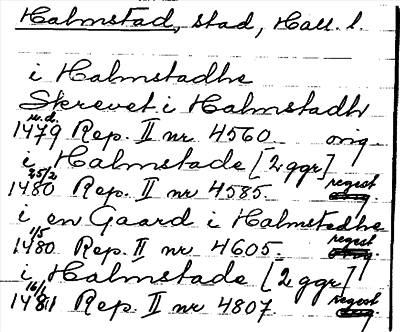 Halmstad, stad, Hall. l.
i Halmstadhe
Skrevet i Halmstadh
u.d.
1479 Rep. II nr 4560. orig.
i Halmstade [2 ggr]
25/2 regest
1480 Rep. II nr 4585.
i en Gaard i Halmstedhe
1/5 regest
1480 Rep. II nr 4605.
i Halmstade [2 ggr]
16/1 regest
1481 Rep. II nr 4807.